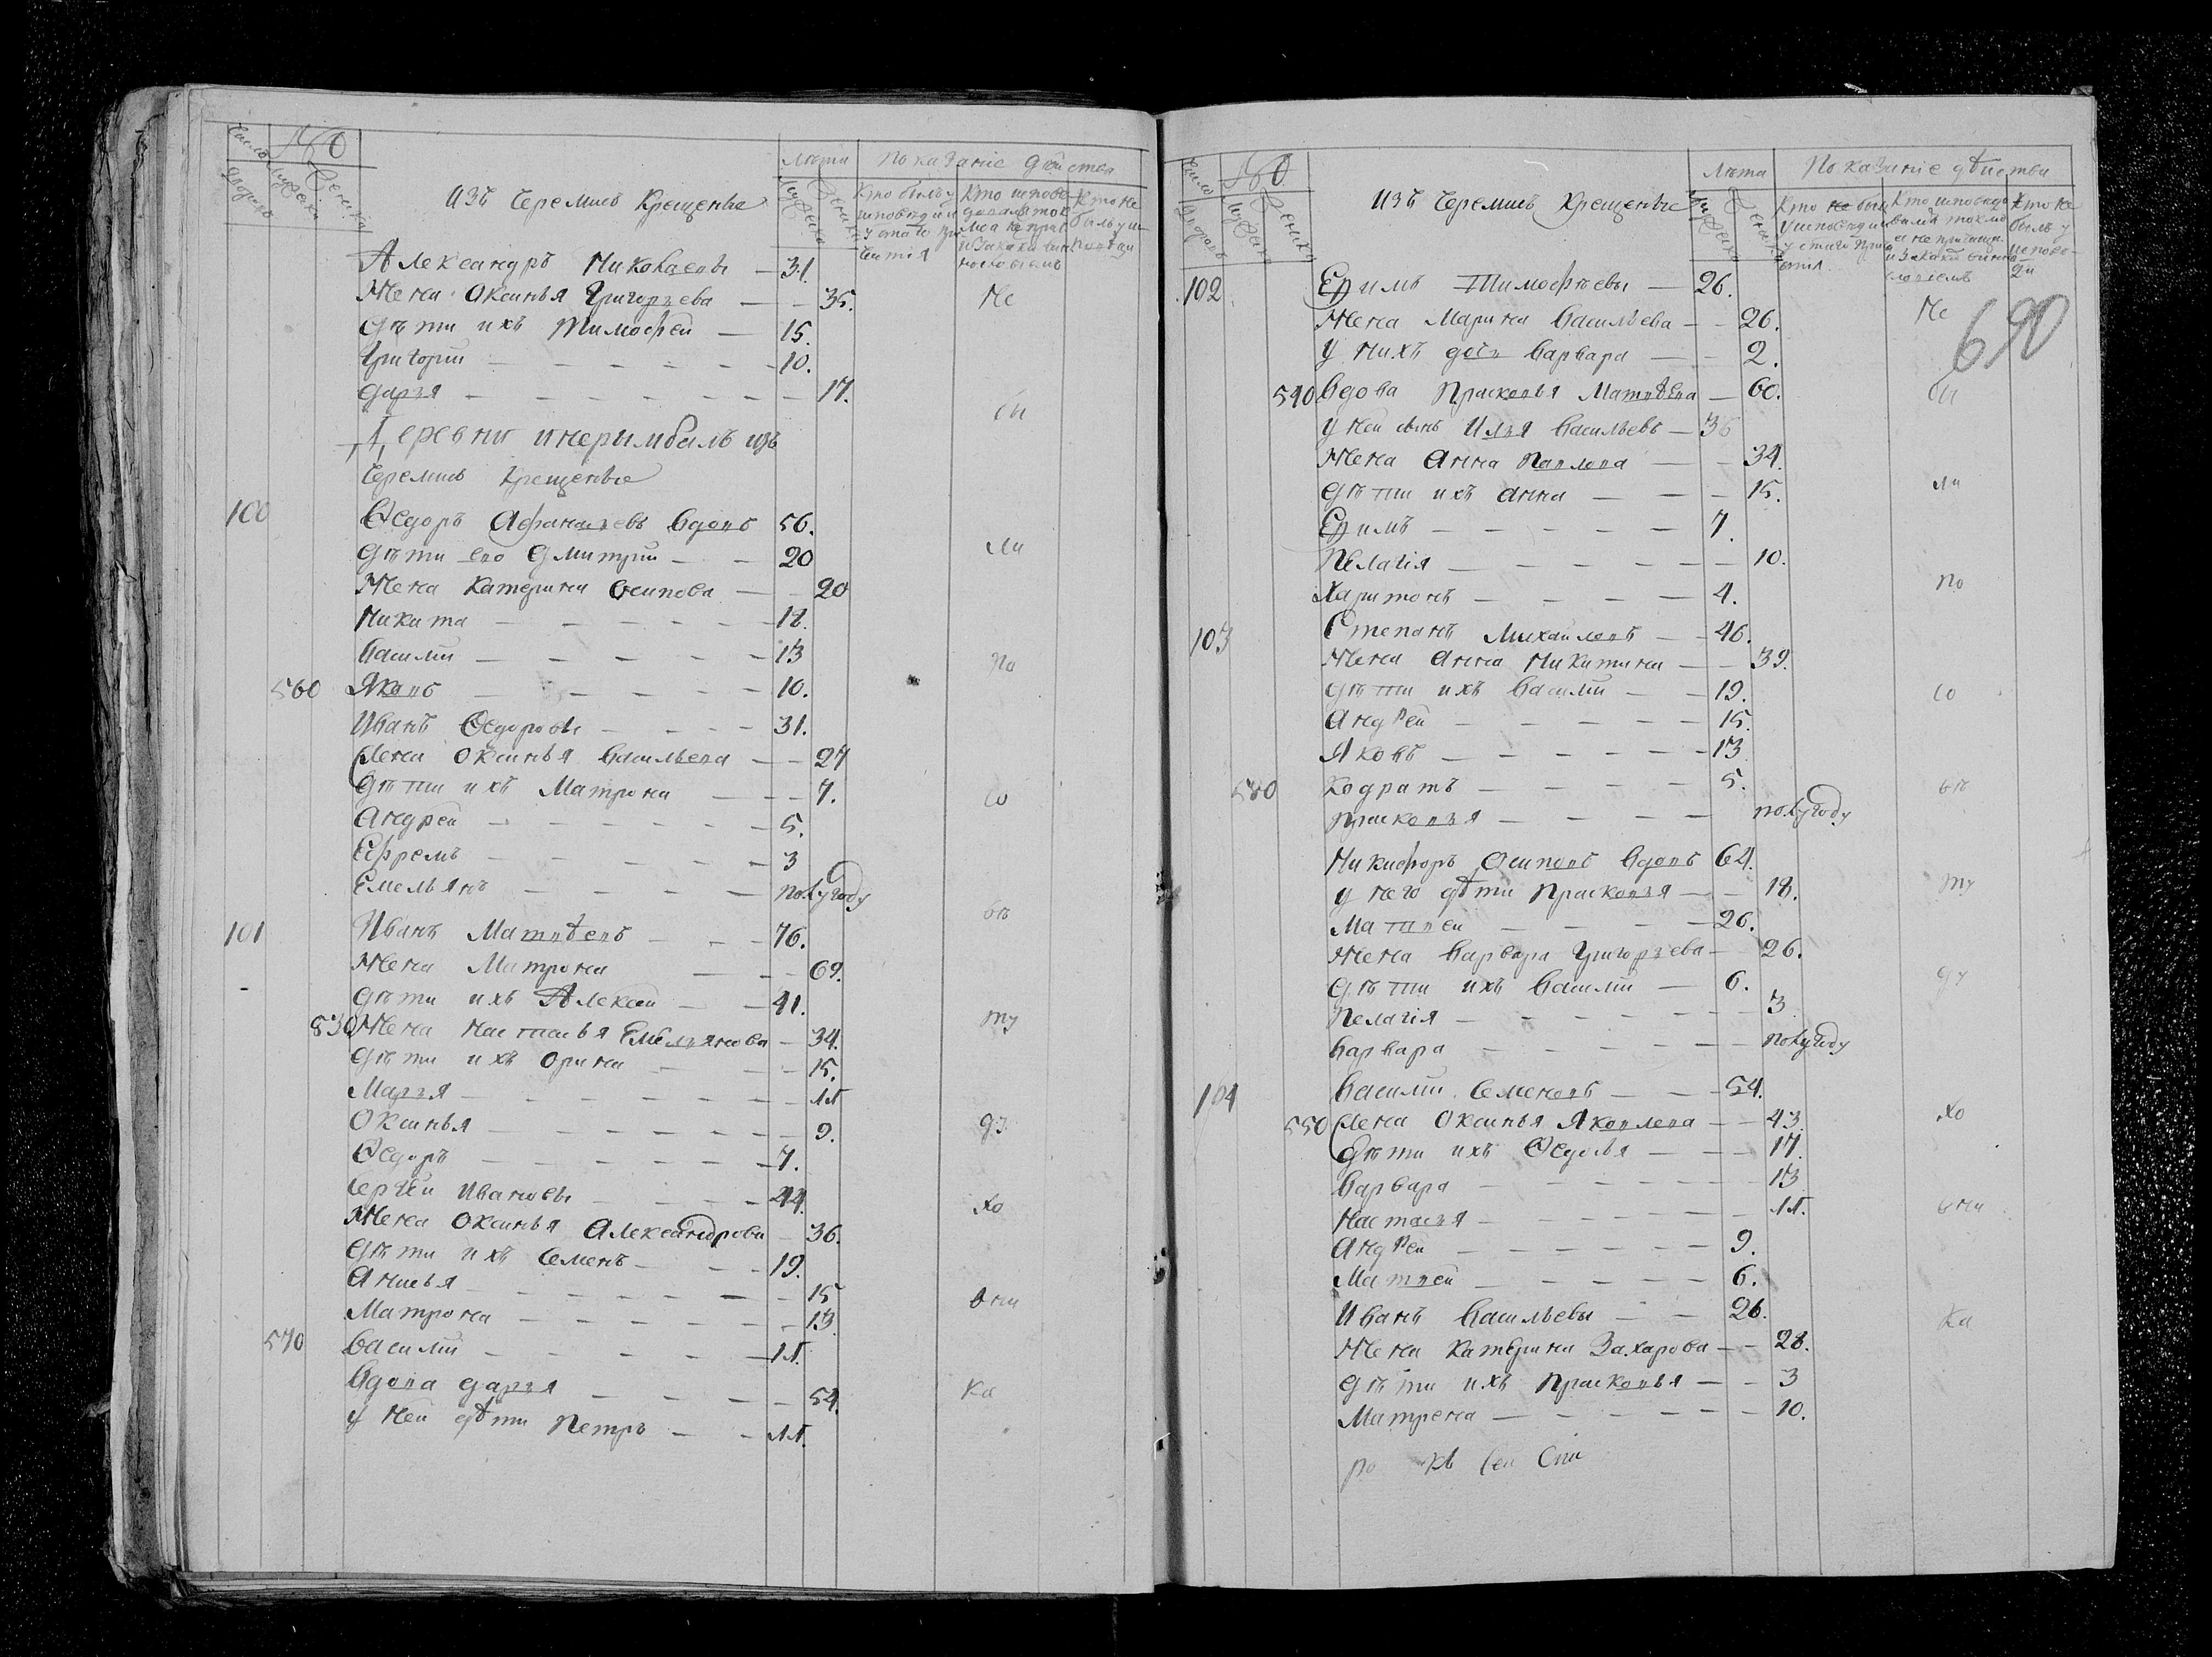 Число дворовъ
№
Мужеска
Женска
Изъ Черемисъ Крещеные
Лѣта
Мужеска
Женска
Показаніе действа
Кто былъ у исповѣди и у стаго причастія
Кто исповедовалъ ток мо а не прича и за каким винословіемъ
Кто не былъ у исповеди
Александръ Николаевъ — 31.
Жена Оксинья Григорьева — 35.
Дѣти ихъ Тимофеи — 15.
Григории — 10.
Дарья — 17.
Деревни
изъ
Черемисъ Крещеные
100 Ѳедоръ Афанасьевъ вдовъ 56.
Дѣти ево Дмитрии — 20
Жена Катерина Осипова — 20
Никита — 18.
Василии — 13
560 Яковъ — 10.
Иванъ Ѳедоровъ — 31.
Жена Оксинья Васильева — 27
Дѣти ихъ Матрона — 7.
Андреи — 5.
Ефремъ — 3
Емельянъ — полугоду
101 Иванъ Матвѣевъ — 76.
Жена Матрона — 69.
Дѣти ихъ Алексеи — 41.
530 Жена Настасья Емельянова — 34.
Дѣти ихъ Орина — 15.
Марья — 11
Оксинья — 9.
Ѳедоръ — 7.
Сергеи Ивановъ — 44.
Жена Оксинья Александрова — 36.
Дѣти ихъ Семенъ — 19.
Анисья — 15
Матрона — 13
570 Василии — 11.
Вдова Дарья — 54.
у ней дѣти Петръ — 11.
Не
бы
ли
по
со
бс
ту
дз
хо
вни
ка
Число дворовъ
№
Мужеска
Женска
Изъ Черемисъ Крещеные
Лѣта
Мужеска
Женска
Показаніе дѣйства
Кто не был у исповѣди и у стаго причастія
Кто исповедывалъ токмо а не причаща и за какимъ винословіемъ
Кто не былъ у исповеди
690
102 Ефимъ Тимофѣевъ — 26.
Жена Марина Васильева — 26.
У нихъ дочь Варвара — 2.
540 Вдова Прасковья Матвѣева — 60.
у ней сынъ Илья Васильевъ — 36
Жена Анна Павлова — 34.
Дѣти ихъ Анна — 15.
Ефимъ — 7.
Пелагія — 10.
Харитонъ — 4.
103 Степанъ Михайловъ — 46.
Жена Анна Никитина — 39.
Дѣти ихъ Василии — 19.
Андреи — 15.
Яковъ — 13
580 Кодратъ — 5.
Прасковья — полугоду
Никифоръ Осиповъ вдовъ 64.
у него дѣти Прасковья — 18.
Матвеи — 26.
Жена Варвара Григорьева — 26.
Дѣти ихъ Василии — 6.
Пелагія — 3
Варвара — полугоду
104 Василии Семеновъ — 54.
550 Жена Оксинья Яковлева — 43.
Дѣти ихъ Ѳедосья — 17.
Варвара — 13
Настасья — 11.
Андреи — 9.
Матвеи — 6.
Иванъ Васильевъ — 26.
Жена Катерина Захарова — 28.
Дѣти ихъ Прасковья — 3
Матрена — 10.
Не
бы
ли
по
со
бс
ту
ду
хо
вни
ка